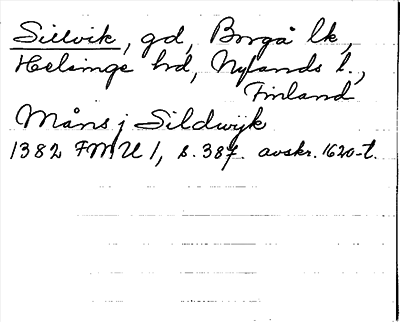 Sillvik, gd, Borgå lk,
Helsinge hd, Nylands l.,
Finland
Måns j Sildwijk
1382 FMU 1, s. 387. avskr. 1620-t.